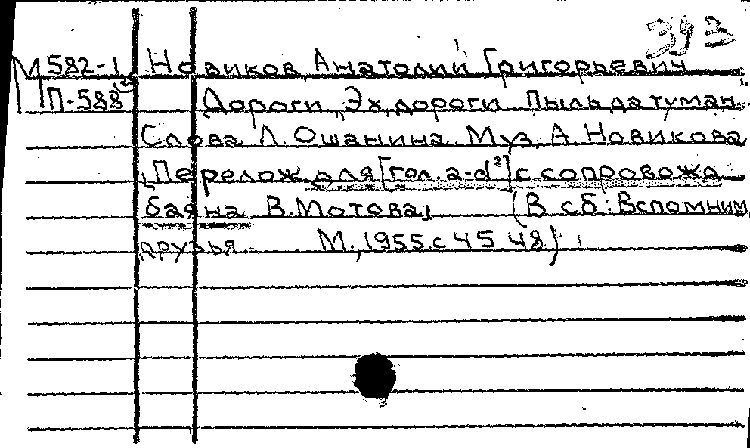 393
М 582-1 Новиков, Анатолий Григорьевич
П-588 Дороги. Эх, дороги. Пыль да туман.
Слова Л. Ошанина. Муз. А. Новикова
[Перелож. для [гол. a-d²] с сопровожд.
баяна В. Мотова] (В сб: Вспомним,
друзья. М., 1955. с 45-48)